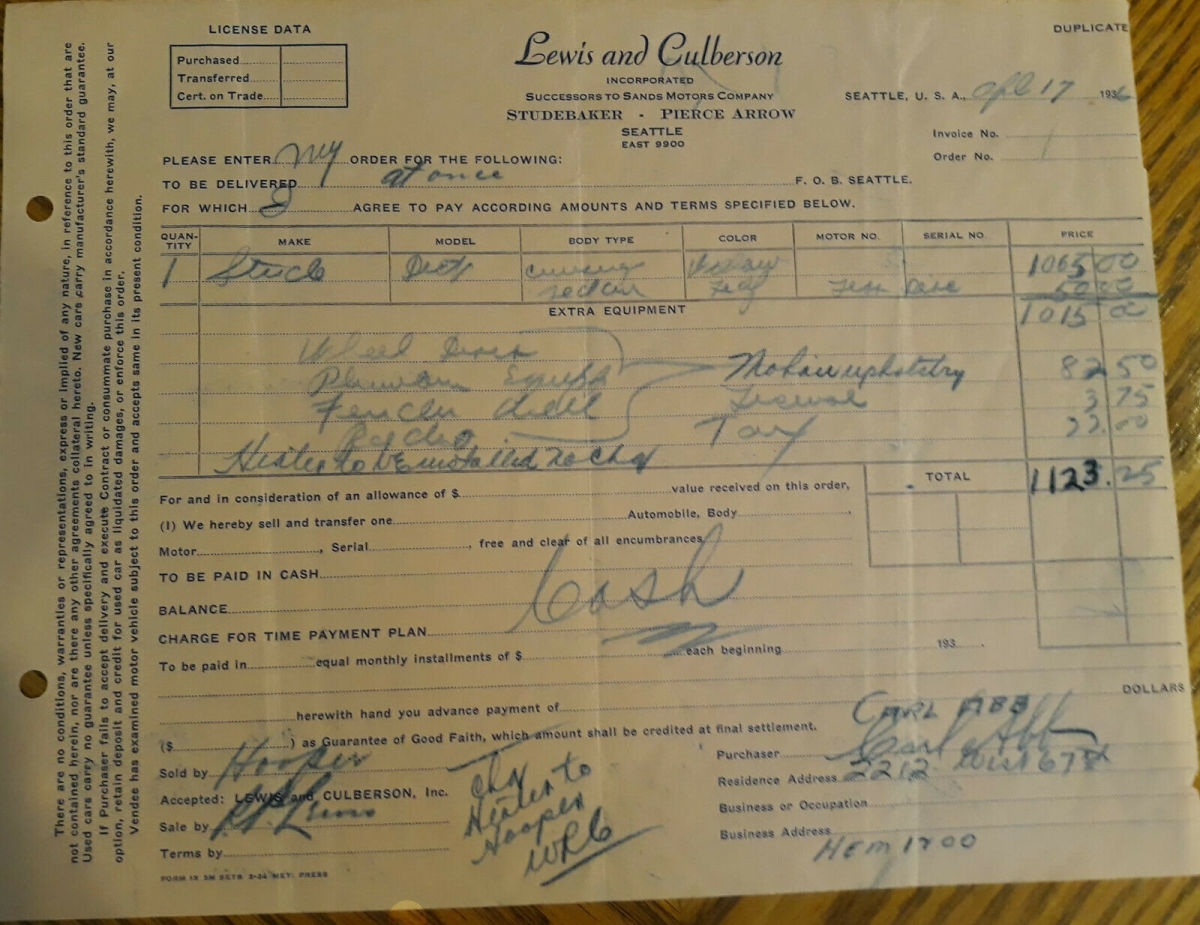 LICENSE DATA
Purchased
Transferred
Cert. on Trade
DUPLICATE
Lewis and Culberson
INCORPORATED
SUCCESSORS TO SANDS MOTORS COMPANY
STUDEBAKER - PIERCE ARROW
SEATTLE
EAST 9900
SEATTLE, U. S. A., Apl 17 1936
Invoice No.
Order No.
PLEASE ENTER my ORDER FOR THE FOLLOWING:
TO BE DELIVERED at once F. O. B. SEATTLE.
FOR WHICH I AGREE TO PAY ACCORDING AMOUNTS AND TERMS SPECIFIED BELOW.
QUANTITY MAKE MODEL BODY TYPE COLOR MOTOR NO. SERIAL NO. PRICE
1 Stude Dict 1065 00
sedan 50 00
EXTRA EQUIPMENT 1015 00
Wheel
Mohair upholstry 82 50
Fender 3 75
Radio Tax 22.00
Heater to be installed no chg
TOTAL 1123.25
For and in consideration of an allowance of $ value received on this order,
(I) We hereby sell and transfer one Automobile, Body
Motor , Serial , free and clear of all encumbrances
TO BE PAID IN CASH
Cash
BALANCE
CHARGE FOR TIME PAYMENT PLAN
To be paid in equal monthly installments of $ each beginning 193
DOLLARS
herewith hand you advance payment of
($ ) as Guarantee of Good Faith, which amount shall be credited at final settlement.
CARL ABB
Purchaser Carl Abb
Sold by Hooper
Residence Address 2212 West 67th
Accepted: LEWIS and CULBERSON, Inc.
Business or Occupation
Sale by Lewis
Business Address
Terms by
HEM 1700
Chg
Heater to
Hooper
WRL
FORM 1X 3M SETS 2-34 MET. PRESS
There are no conditions, warranties or representations, express or implied of any nature, in reference to this order that are
not contained herein, nor are there any other agreements collateral hereto. New cars carry manufacturer's standard guarantee.
Used cars carry no guarantee unless specifically agreed to in writing.
If Purchaser fails to accept delivery and execute Contract or consummate purchase in accordance herewith, we may, at our
option, retain deposit and credit for used car as liquidated damages, or enforce this order.
Vendee has examined motor vehicle subject to this order and accepts same in its present condition.